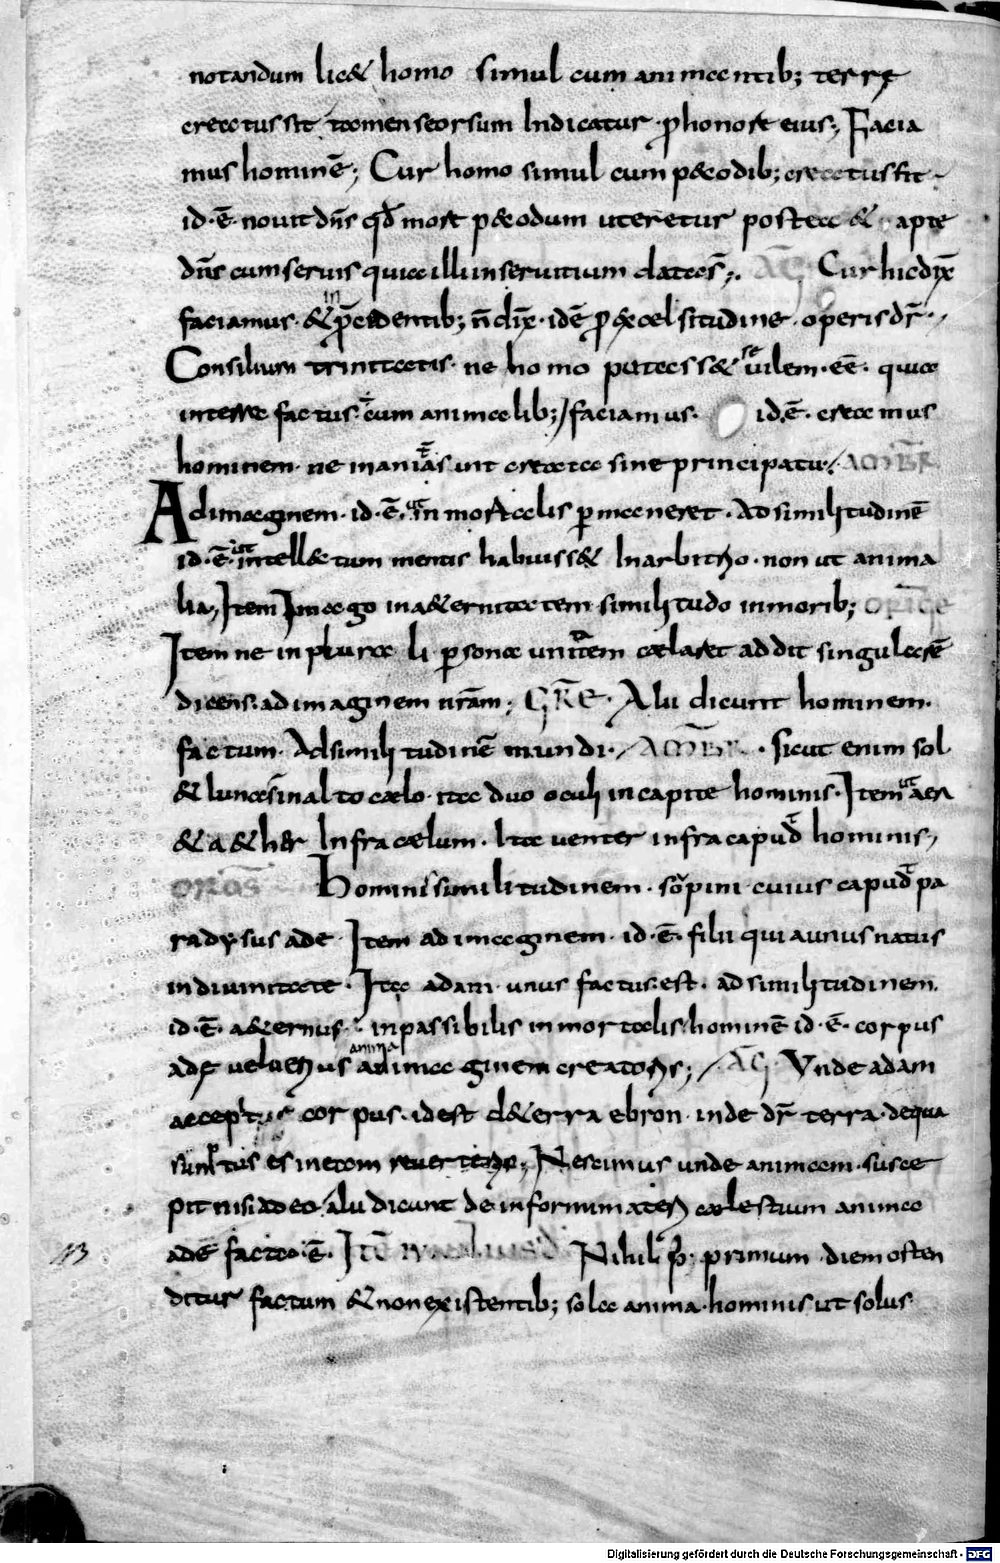 notandum lic& homo simul cum animantib; terrę
creatus sit tamen seorsum Indicatur p honore eius; Facia
mus hominē; Cur homo simul cum p&codib; creatus sit
id·ē· nouit dn̄s qđ mort p&codum uteretur postea & apte
dn̄s cum seruis quia illi in seruitium datas̄;. AḠ Cur hic dix̄
faciamus· & in p̄cedentib; n̄ dix̄· idē p excelsitudine operis dr̄·
Consilium trinitatis· ne homo putass& se uilem· eē· quia
in terra factus· cum animalib; / faciamus· id·ē· creamus
hominem· ne inanitas uit creata sine principatu; AMBR̄
Ad imaginem· id·ē· ut inmortalis permaneret· Ad similitudinē
id·ē· ut intell&tum mentis habuiss& In arbitrio· non ut anima
lia, Item Imago in a&ernitatem similitudo in morib; ORIGE
Item ne in plura li persona unitatem cælaret addit singularē
dicens· ad imaginem nr̄am; GRE· Alii dicunt hominem·
factum· Ad similitudinē mundi· / AMBR· Sicut enim sol
& luna s̄ in alto cælo· ita duo oculi in capite hominis· Item ut aer
& a&her Infra cælum· Ita uenter infra capud hominis,
OROS̄ Homini similitudinem· capud pa
radysus adę· Item ad imaginem· id·ē· filii qui a unus natus
in diuinitate· Ita adam unus factus· est· ad similitudinem·
id·ē· a&ernus· inpassibilis inmortalis hominē id·ē· corpus
adę uel uerius anima ad imaginem creatoris; / AḠ Vnde adam
acceptus corpus· id est d& erra ebron· inde dr̄ terra· de qua
sumptus es in eam reuerteris; Nescimus unde animam· susce
pit nisi a deo alii dicunt de informi materi cælestium anima
adę facta·ē· Itē Nihil p; primum diem osten
ditur factum & non existentib; sola anima· hominis ut solus
13
Digitalisierung gefördert durch die Deutsche Forschungsgemeinschaft · DFG